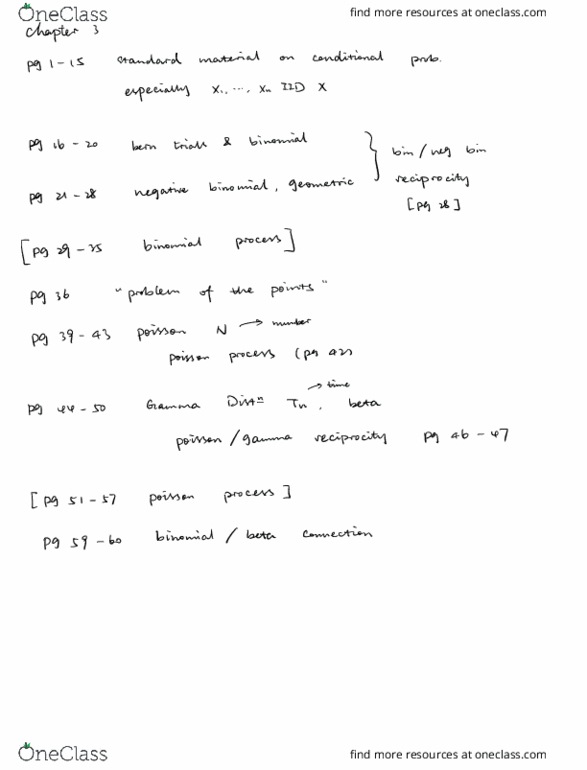 OneClass
find more resources at oneclass.com
Chapter 3
pg 1-15 standard material on conditional prob.
especially X1, ..., Xn IID X
pg 16-20 bern trials & binomial
bin/neg bin
reciprocity
[pg 28]
pg 21-28 negative binomial, geometric
[pg 29-35 binomial process]
pg 36 "problem of the points"
pg 39-43 poisson N → number
poisson process (pg 42)
→ time
pg 44-50 Gamma Distⁿ Tn, beta
poisson/gamma reciprocity pg 46-47
[pg 51-57 poisson process]
pg 59-60 binomial/beta connection
OneClass
find more resources at oneclass.com